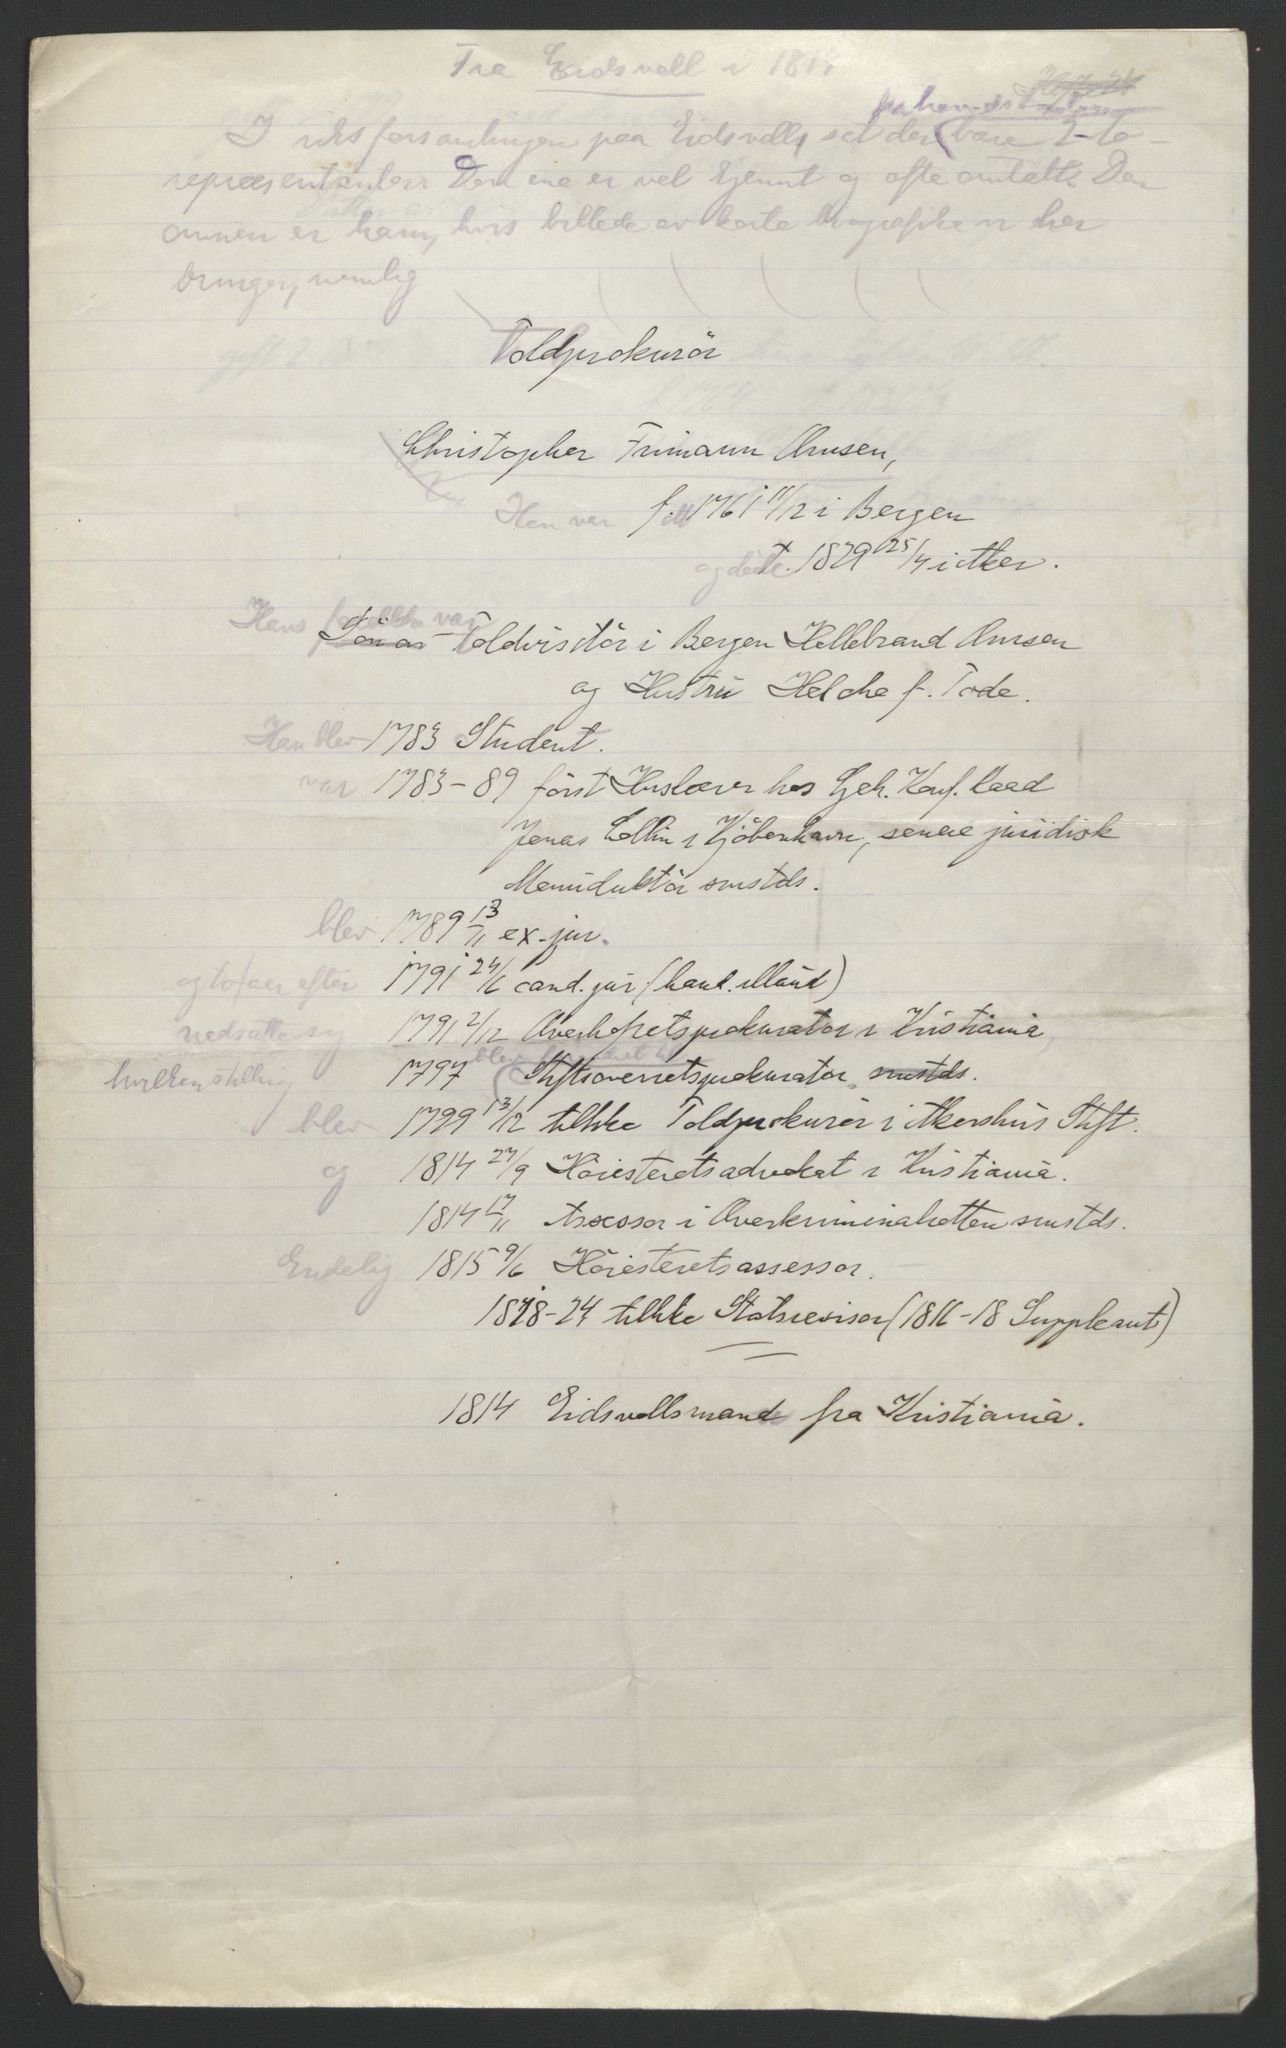 Fra Eidsvoll i 1814
I riksforsamlingen paa Eidsvoll sat der bare 2 to
repræsentanter Den ene er vel kjennt og ofte omtalt. Den
annen er ham, hvis billede av korte biografike vi her
bringer, nemlig
Toldprokurör
Christopher Frimann Omsen,
Han var født f. 1761 11/12 i Bergen
og døde †. 1829 25/4 i Aker.
Hans forældre var
Sön av Toldvisitör i Bergen Hellebrand Omsen
og Hustru Helche f. Tode.
Han blev 1783 Student.
var 1783-89 först Huslærer hos Geh. Konf. Raad
Jonas Collin i Kjöbenhavn, senere juridisk
Manuduktör smstds.
blev 1789 13/11 ex. jur.
og to aar efter 1791 24/6 cand. jur. (haud. illaud)
nedsatte sig 1791 2/12 Overhofretsprokurator i Kristiania
hvilken stilling 1797 blev Stiftsoverretsprokurator smstds.
blev 1799 13/12 tillike Toldprokurör i Akershus Stift.
og 1814 27/9 Höiesteretsadvokat i Kristiania.
1814 17/11 Assessor i Overkriminalretten smstds.
Endelig 1815 9/6 Höiesteretsassessor.
1818-24 tillike Statsrevisor (1816-18 Suppleant)
1814 Eidsvollsmand fra Kristiania.